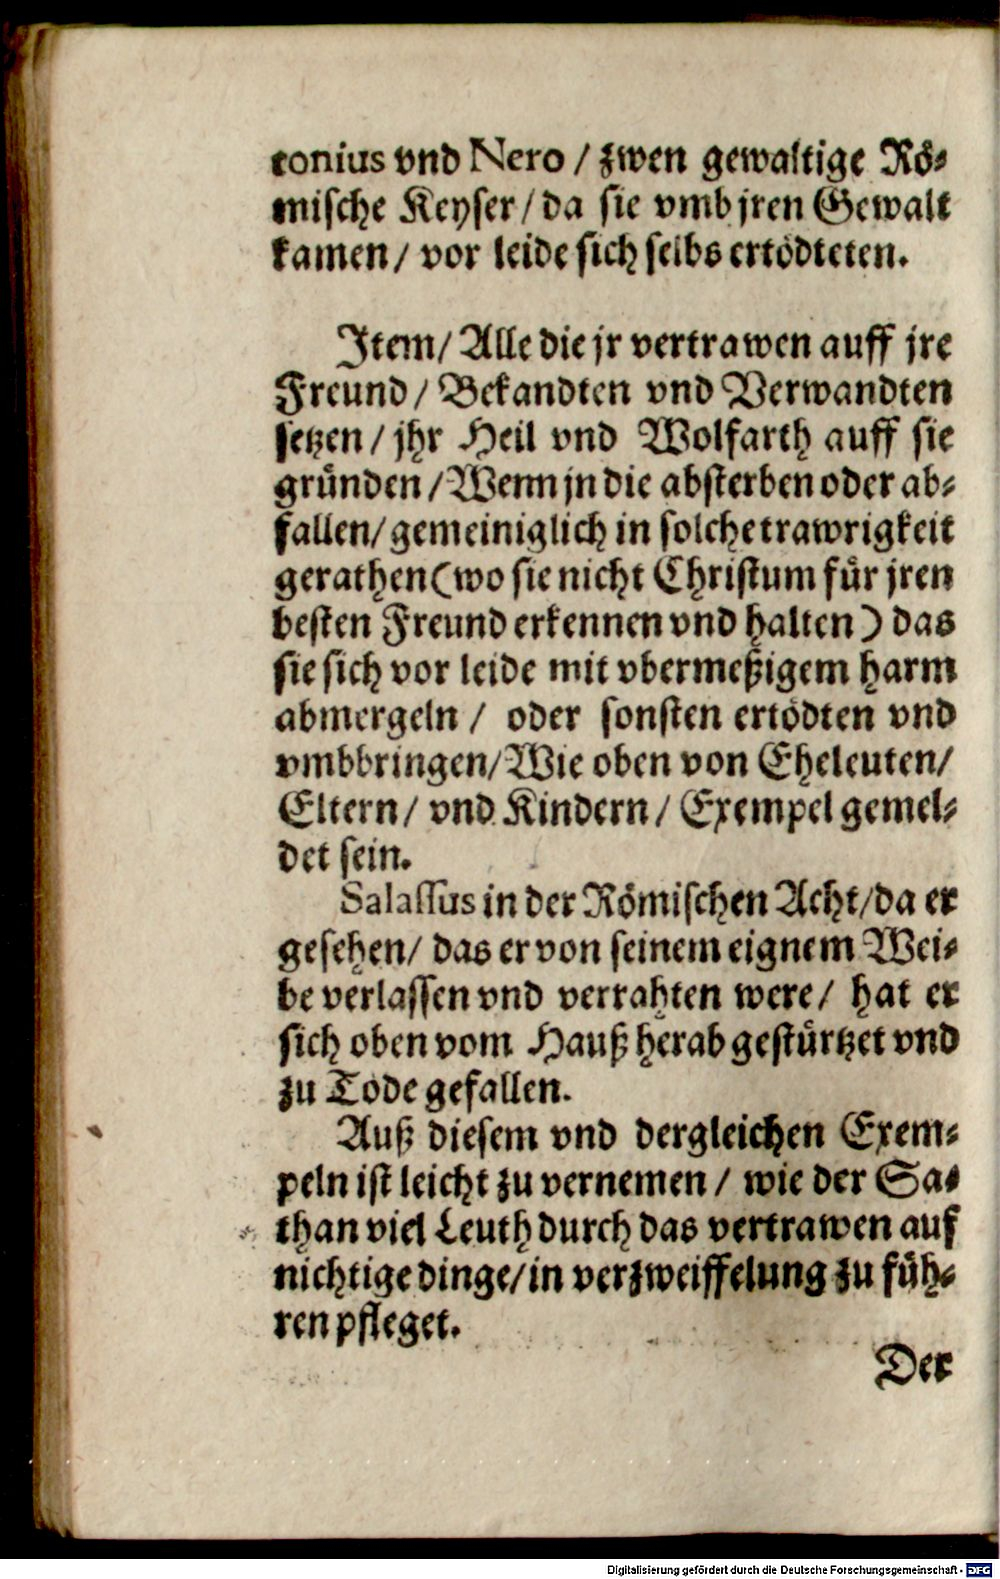 tonius vnd Nero / zwen gewaltige Rö-
mische Keyser / da sie vmb jren Gewalt
kamen / vor leide sich selbs ertödteten.
Item / Alle die jr vertrawen auff jre
Freund / Bekandten vnd Verwandten
setzen / jhr Heil vnd Wolfarth auff sie
gründen / Wenn jn die absterben oder ab-
fallen / gemeiniglich in solche trawrigkeit
gerathen (wo sie nicht Christum für jren
besten Freund erkennen vnd halten) das
sie sich vor leide mit vbermeßigem harm
abmergeln / oder sonsten ertödten vnd
vmbbringen / Wie oben von Eheleuten /
Eltern / vnd Kindern / Exempel gemel-
det sein.
Salassus in der Römischen Acht / da er
gesehen / das er von seinem eignem Wei-
be verlassen vnd verrahten were / hat er
sich oben vom Hauß herab gestürtzet vnd
zu Tode gefallen.
Auß diesem vnd dergleichen Exem-
peln ist leicht zu vernemen / wie der Sa-
than viel Leuth durch das vertrawen auf
nichtige dinge / in verzweiffelung zu füh-
ren pfleget.
Der
Digitalisierung gefördert durch die Deutsche Forschungsgemeinschaft - DFG